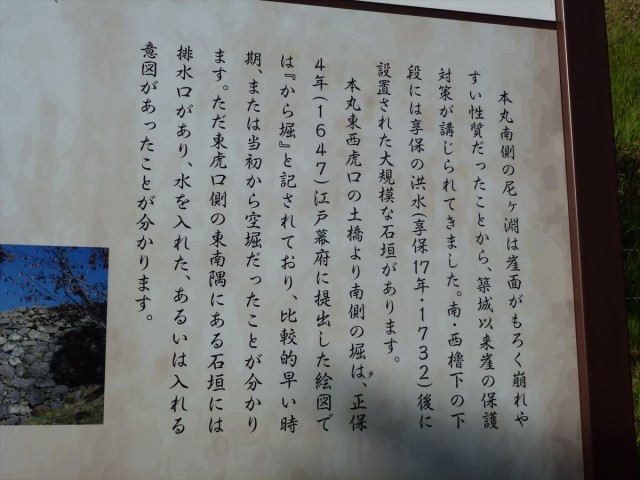 本丸南側の尼ヶ淵は崖面がもろく崩れや
すい性質だったことから、築城以来崖の保護
対策が講じられてきました。南・西櫓下の下
段には享保の洪水(享保17年・1732)後に
設置された大規模な石垣があります。
本丸東西虎口の土橋より南側の堀は、正保
4年(1647)江戸幕府に提出した絵図で
は『から堀』と記されており、比較的早い時
期、または当初から空堀だったことが分かり
ます。ただ東虎口側の東南隅にある石垣には
排水口があり、水を入れた、あるいは入れる
意図があったことが分かります。